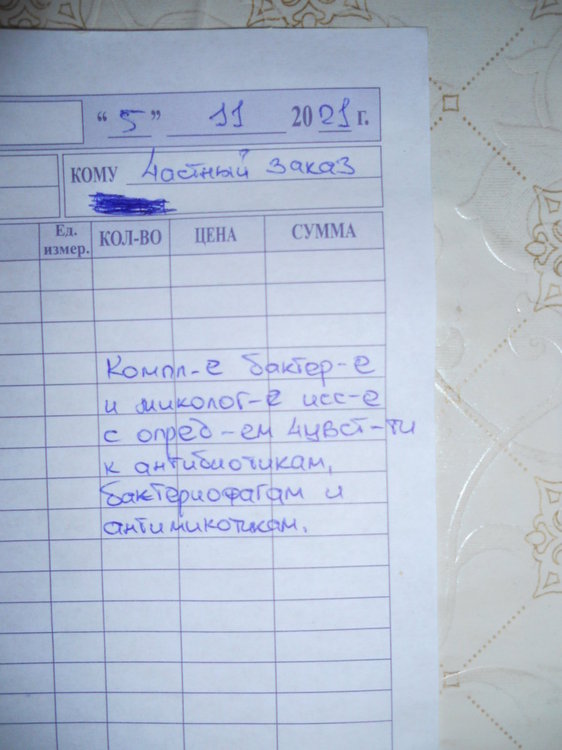 “ 5 ” 11 20 21 г.
КОМУ Частный заказ
Ед. измер. КОЛ-ВО ЦЕНА СУММА
Компл-е бактер-е
и миколог-е исс-е
с опред-ем чувст-ти
к антибиотикам,
бактериофагам и
антимикотикам.